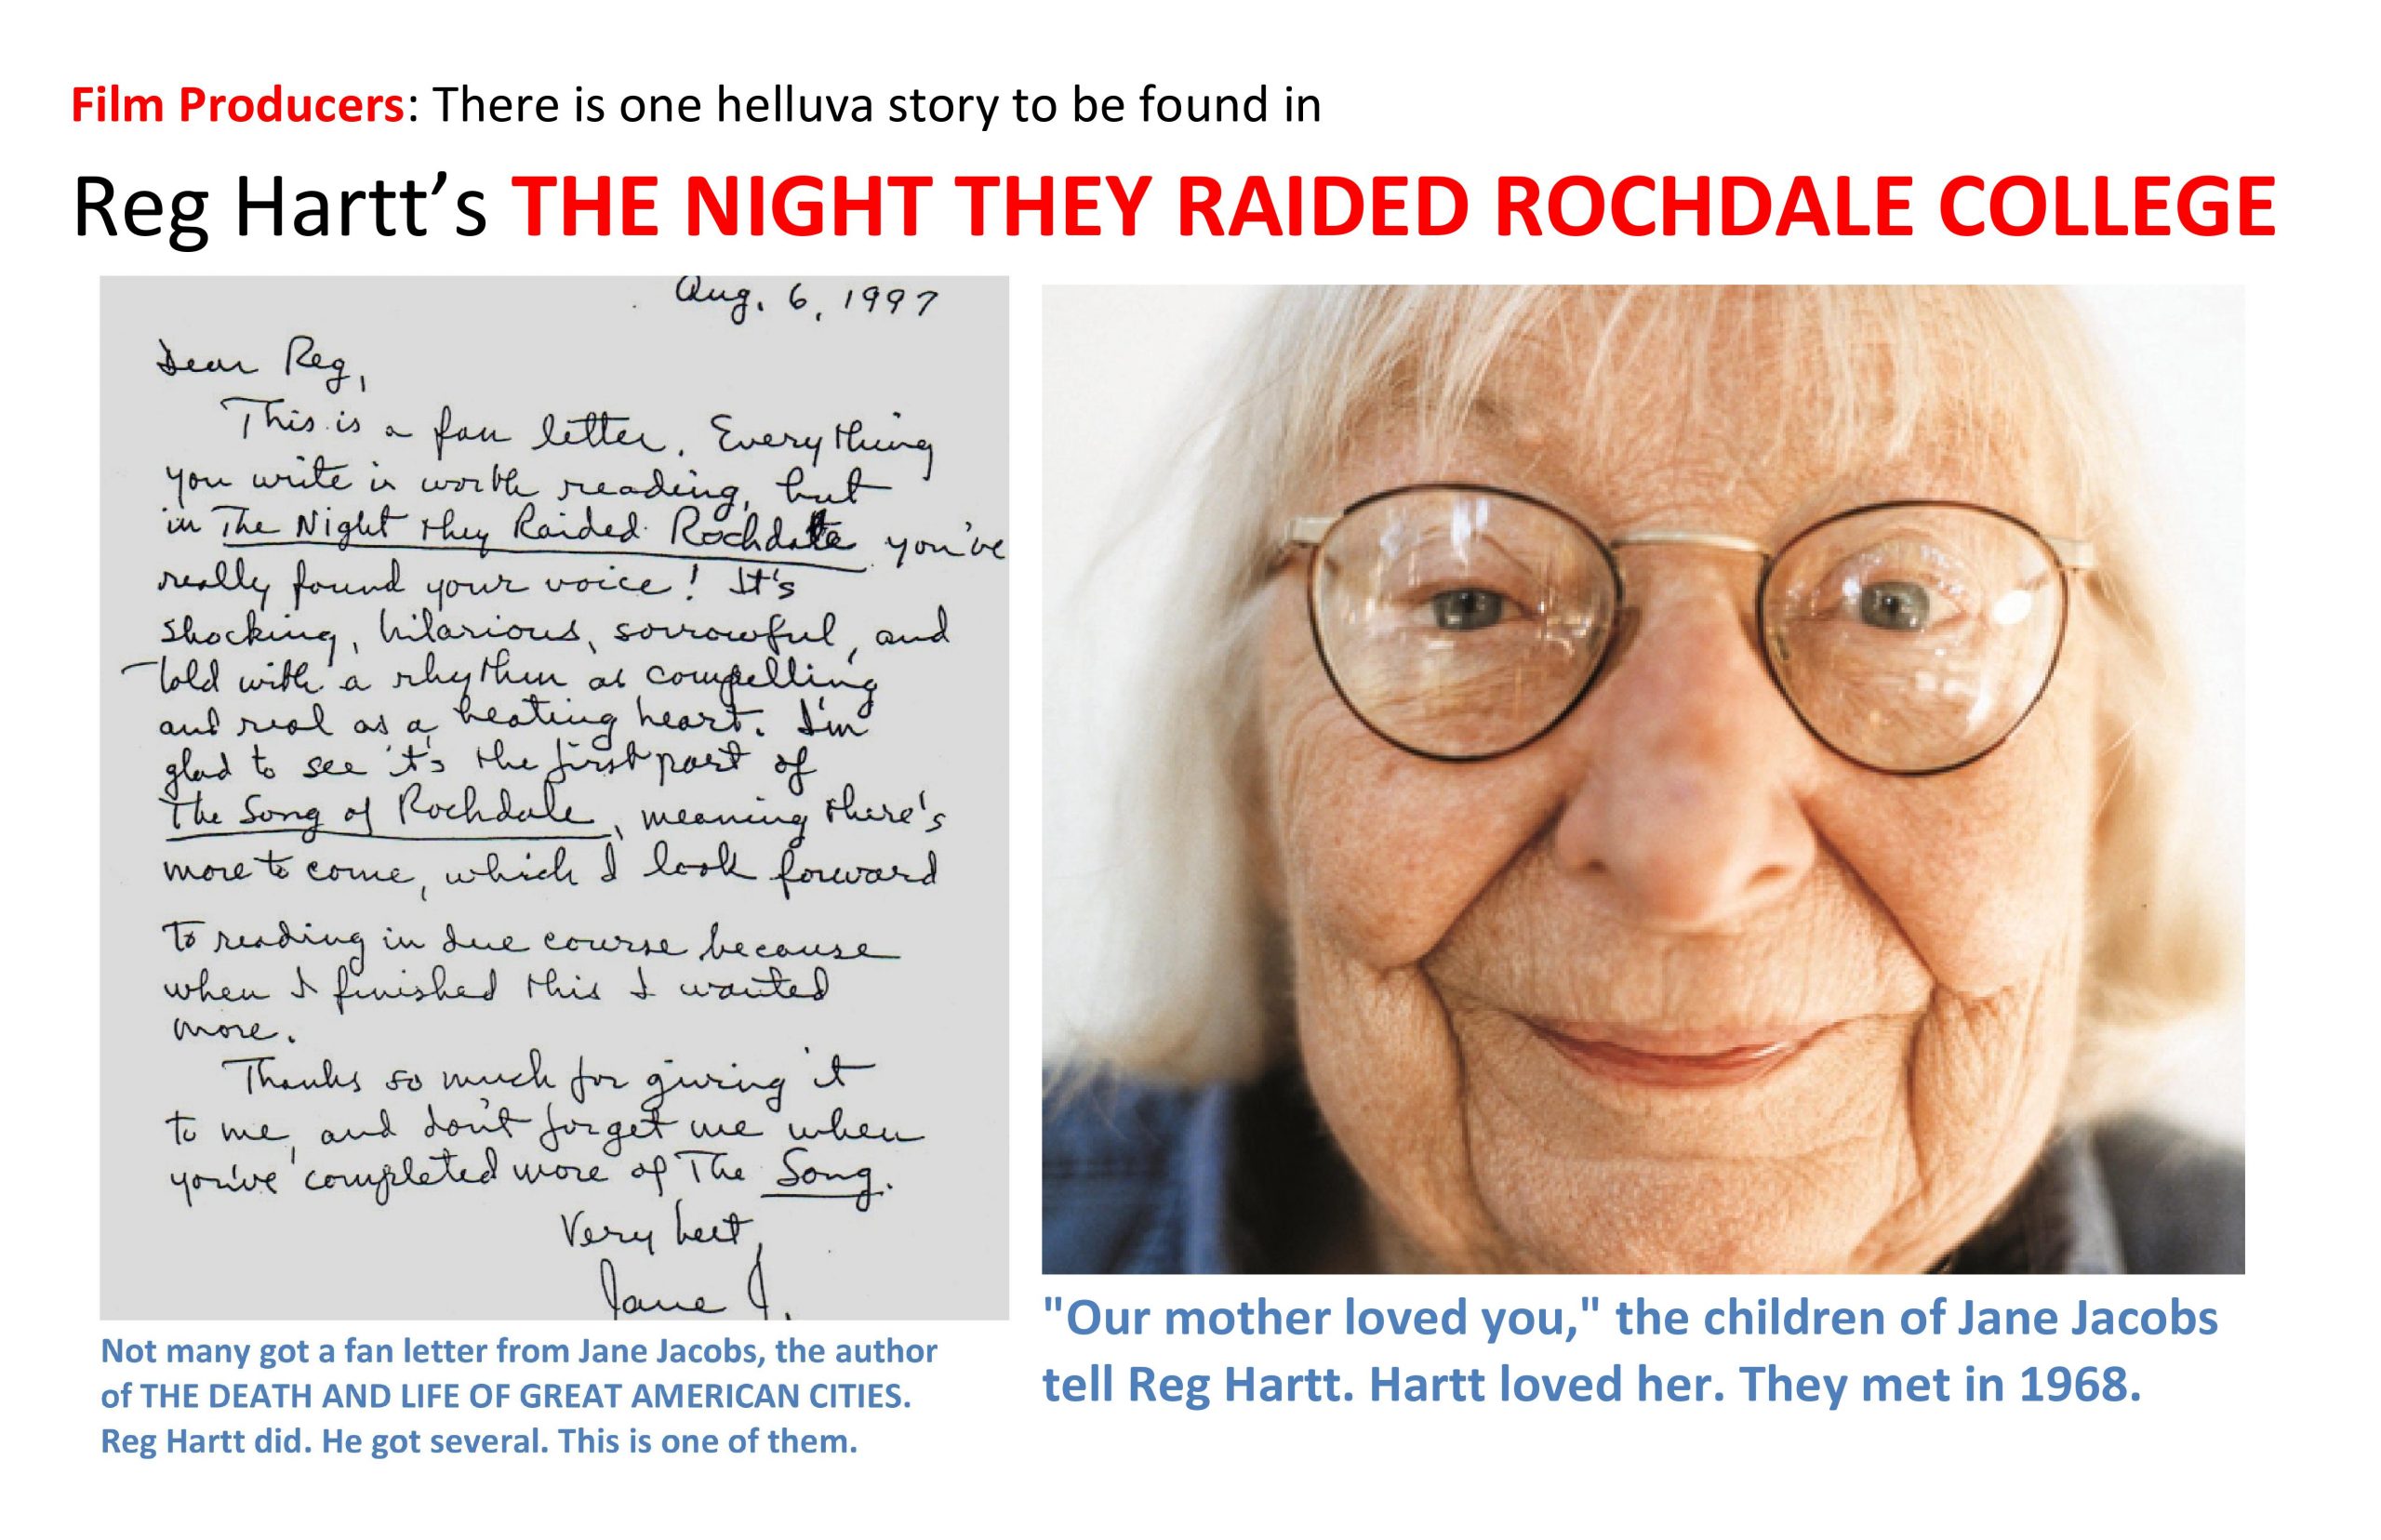 Film Producers: There is one helluva story to be found in
Reg Hartt’s THE NIGHT THEY RAIDED ROCHDALE COLLEGE
Aug. 6, 1997
Dear Reg,
This is a fan letter. Everything
you write is worth reading, but
in The Night they Raided Rochdale you've
really found your voice! It's
shocking, hilarious, sorrowful, and
told with a rhythm as compelling
and real as a beating heart. I'm
glad to see it's the first part of
The Song of Rochdale, meaning there's
more to come, which I look forward
to reading in due course because
when I finished this I wanted
more.
Thanks so much for giving it
to me, and don't forget me when
you've completed more of The Song.
Very best,
Jane J.
Not many got a fan letter from Jane Jacobs, the author
of THE DEATH AND LIFE OF GREAT AMERICAN CITIES.
Reg Hartt did. He got several. This is one of them.
"Our mother loved you," the children of Jane Jacobs
tell Reg Hartt. Hartt loved her. They met in 1968.